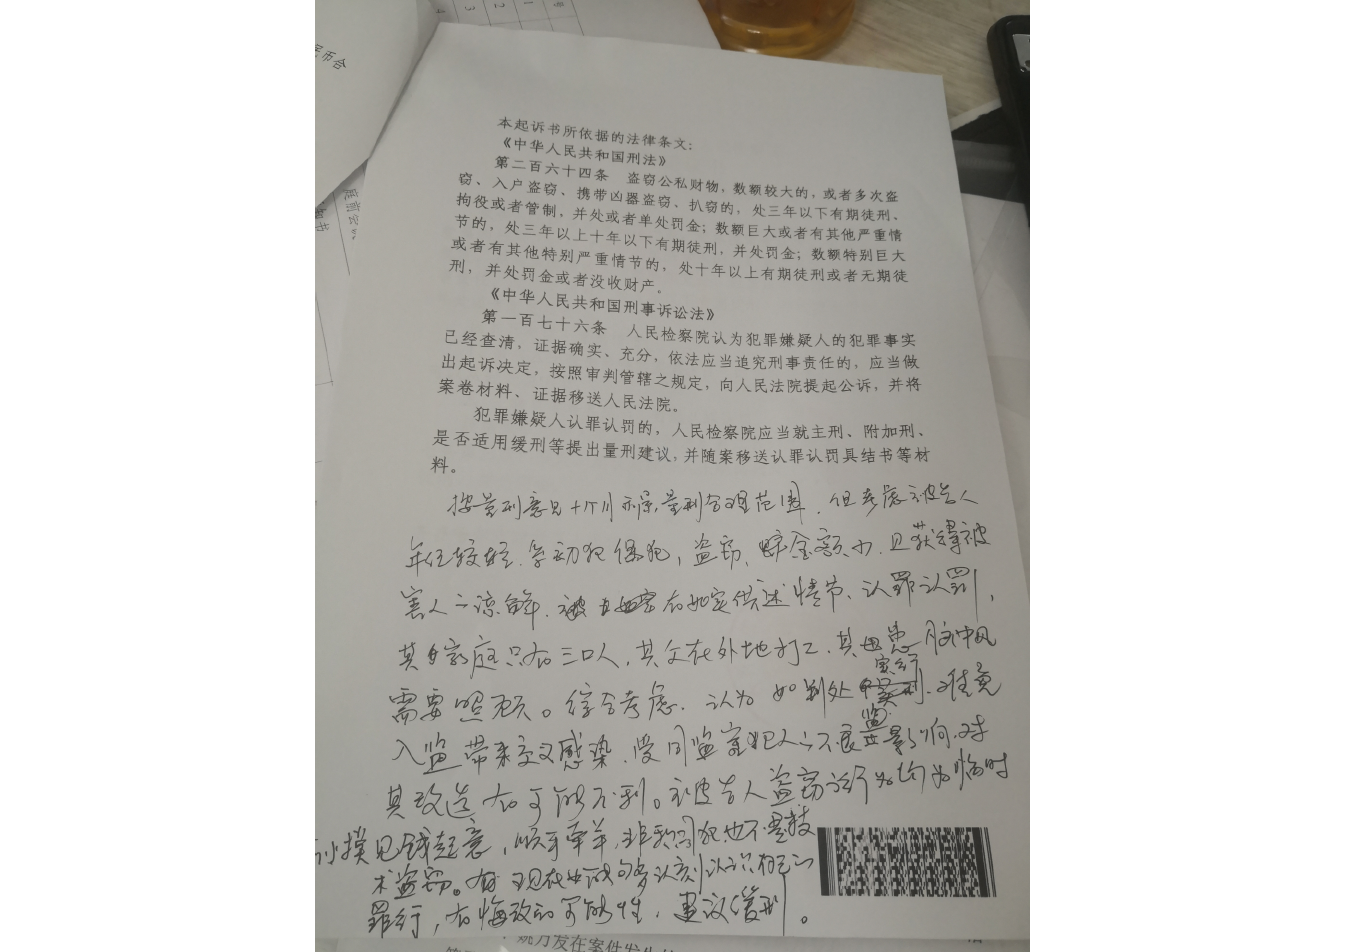 民币合
号
1
2
3
4
本起诉书所依据的法律条文：
《中华人民共和国刑法》
第二百六十四条　盗窃公私财物，数额较大的，或者多次盗
窃、入户盗窃、携带凶器盗窃、扒窃的，处三年以下有期徒刑、
拘役或者管制，并处或者单处罚金；数额巨大或者有其他严重情
节的，处三年以上十年以下有期徒刑，并处罚金；数额特别巨大
或者有其他特别严重情节的，处十年以上有期徒刑或者无期徒
刑，并处罚金或者没收财产。
《中华人民共和国刑事诉讼法》
第一百七十六条　人民检察院认为犯罪嫌疑人的犯罪事实
已经查清，证据确实、充分，依法应当追究刑事责任的，应当做
出起诉决定，按照审判管辖之规定，向人民法院提起公诉，并将
案卷材料、证据移送人民法院。
犯罪嫌疑人认罪认罚的，人民检察院应当就主刑、附加刑、
是否适用缓刑等提出量刑建议，并随案移送认罪认罚具结书等材
料。
按量刑意见十个月 量刑合理范围，但考虑被告人
年纪较轻，系初犯偶犯，盗窃 金额小，且获得被
害人之谅解，被 有如实供述情节、认罪认罚，
其家庭只有三口人，其父在外地打工，其母患脑中风
需要照顾。综合考虑，认为如判处实行刑，难免
入监带来交叉感染，受同监室犯人之不良影响，对
其改造有可能不利。该被告人盗窃行为均为临时
见钱起意，顺手牵羊，非 犯也不是技
术盗窃。 现在 能够 认识 自己的
罪行，有悔改的可能性，建议缓刑。